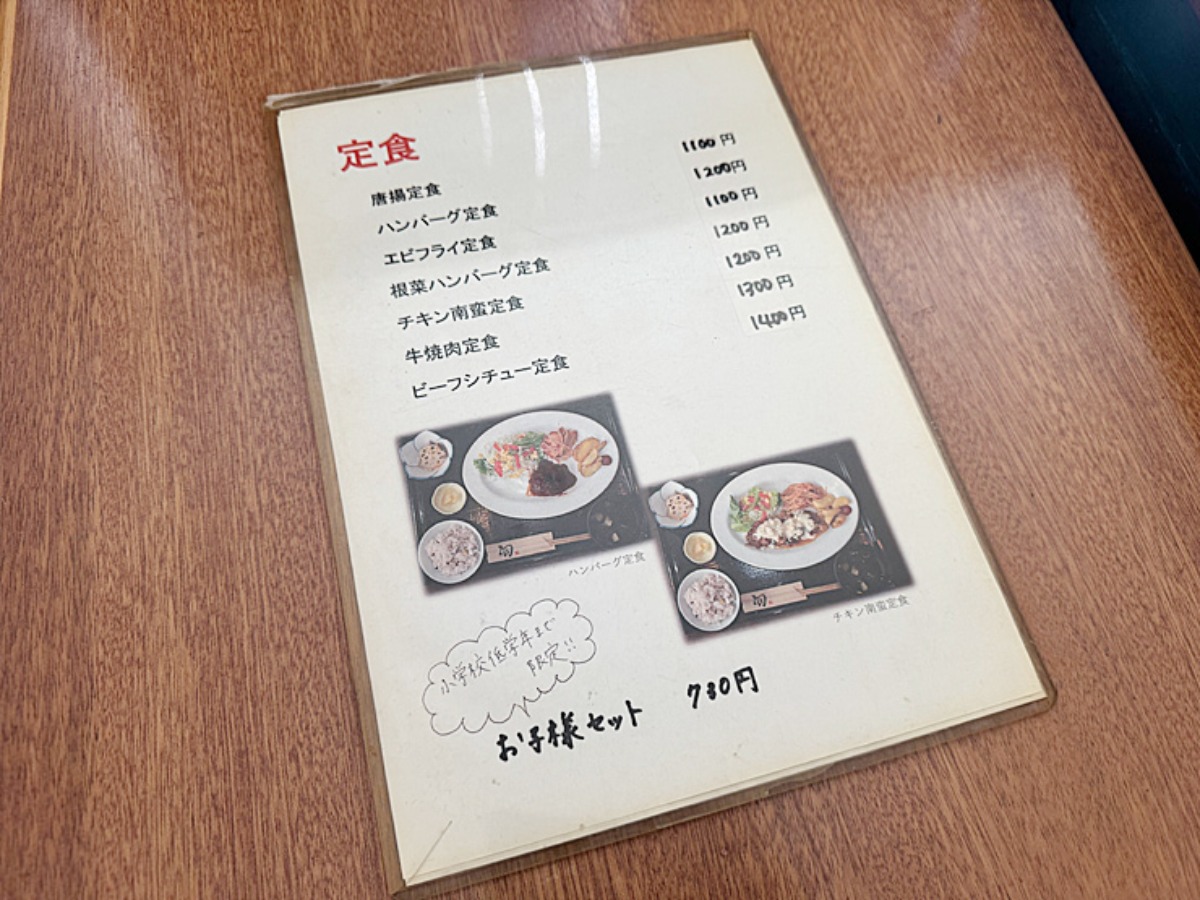 定食
唐揚定食 1100円
ハンバーグ定食 1200円
エビフライ定食 1100円
根菜ハンバーグ定食 1200円
チキン南蛮定食 1200円
牛焼肉定食 1300円
ビーフシチュー定食 1400円
旬
ハンバーグ定食
旬
チキン南蛮定食
小学校低学年まで
限定!!
お子様セット 780円